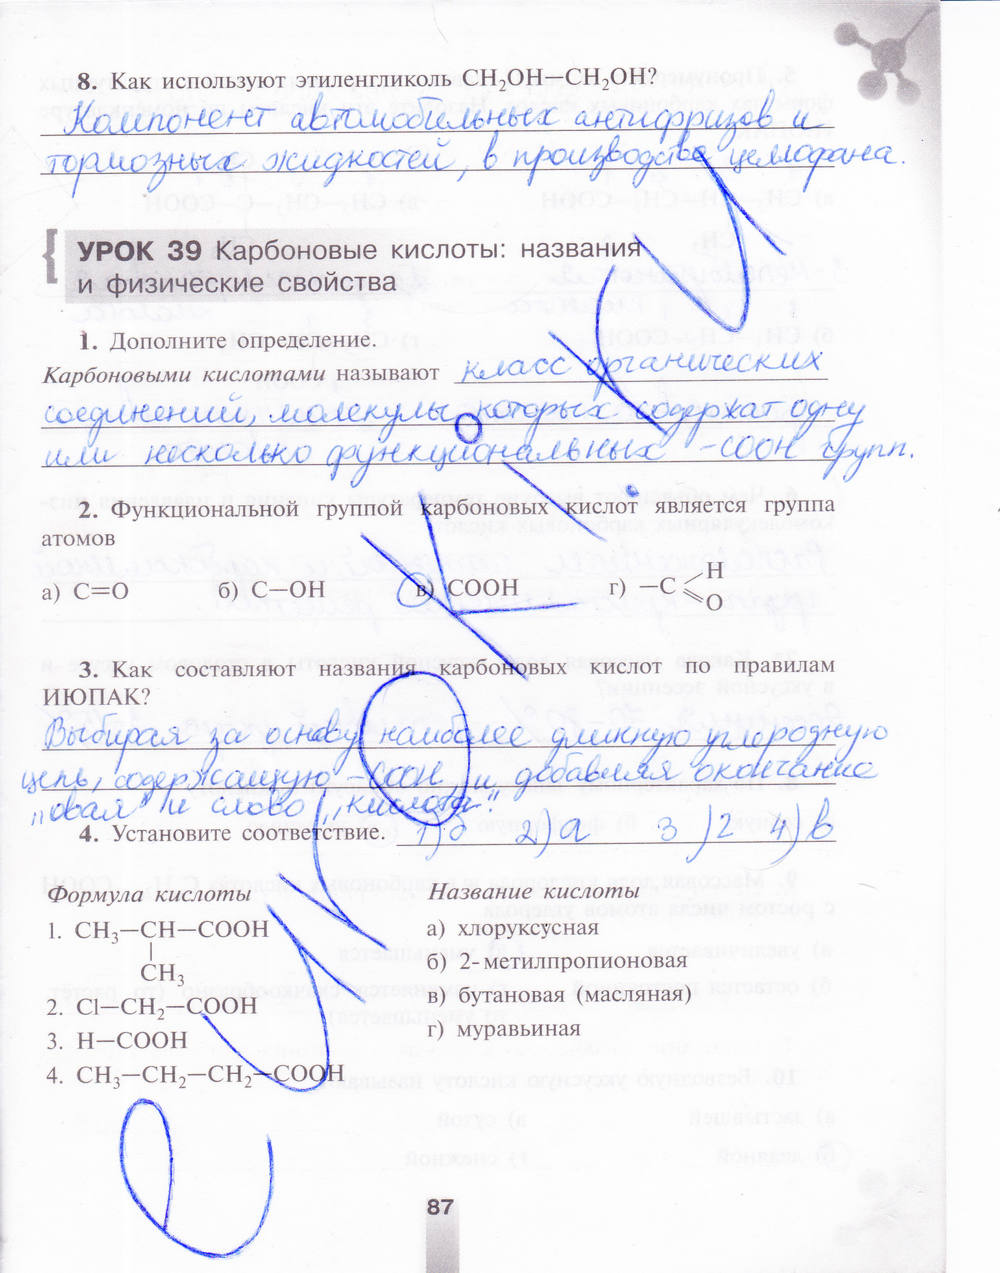 8. Как используют этиленгликоль CH₂OH—CH₂OH?
Компонент автомобильных антифризов и
тормозных жидкостей, в производстве целлофана.
УРОК 39 Карбоновые кислоты: названия
и физические свойства
1. Дополните определение.
Карбоновыми кислотами называют класс органических
соединений, молекулы которых содержат одну
или несколько функциональных -COOH групп.
2. Функциональной группой карбоновых кислот является группа
атомов
а) C=O б) C—OH в) COOH г) —C H O
3. Как составляют названия карбоновых кислот по правилам
ИЮПАК?
Выбирая за основу наиболее длинную углеродную
цепь, содержащую -COOH, и добавляя окончание
„овая" и слово „кислота".
4. Установите соответствие. 1)б 2)а 3)г 4)в
Формула кислоты Название кислоты
1. CH₃—CH—COOH а) хлоруксусная
CH₃ б) 2-метилпропионовая
2. Cl—CH₂—COOH в) бутановая (масляная)
3. H—COOH г) муравьиная
4. CH₃—CH₂—CH₂—COOH
87